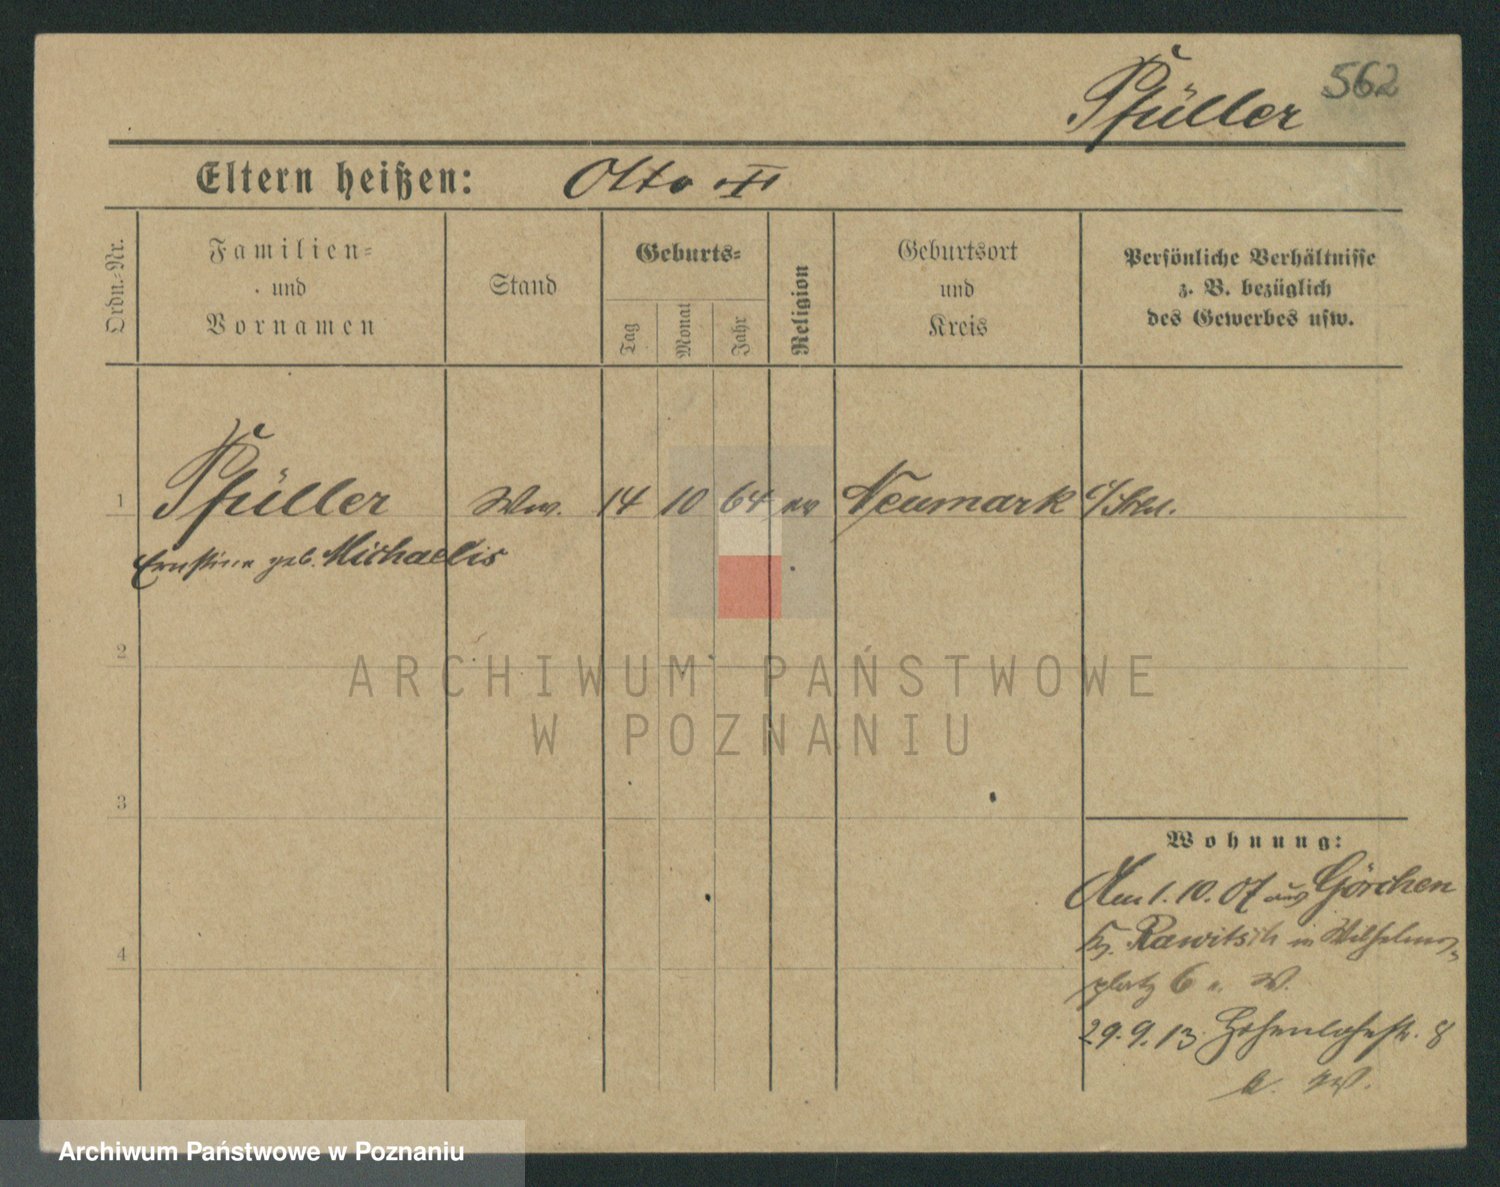 562
Pfüller
Eltern heißen: Otto
Ordn.-Nr.
Familien-
und
Vornamen
Stand
Geburts-
Tag
Monat
Jahr
Religion
Geburtsort
und
Kreis
Persönliche Verhältnisse
z. B. bezüglich
des Gewerbes usw.
1 Pfüller Ww. 14 10 64 ev Neumark i/Schl.
Ernstine geb. Michaelis
2
3
4
Wohnung:
Am 1. 10. 07 aus Görchen
Kr. Rawitsch in Wilhelms-
platz 6 W.
29. 9. 13 Hohenlohestr. 8
b. W.
ARCHIWUM PAŃSTWOWE
W POZNANIU
Archiwum Państwowe w Poznaniu